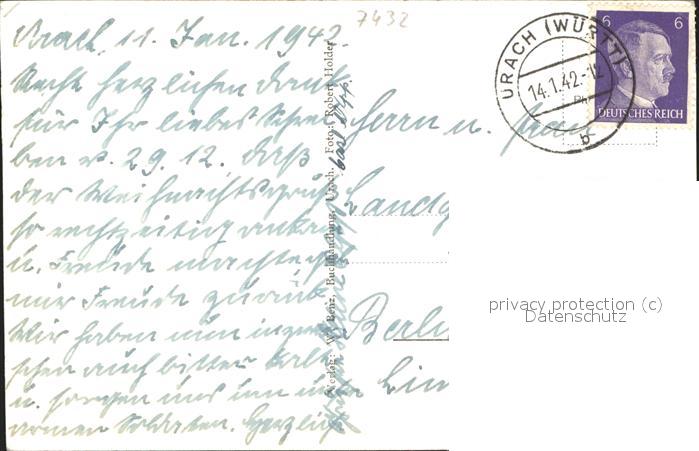 7432
Urach, 11. Jan. 1942.
Recht herzlichen Dank
für Ihr liebes Schrei
ben v. 29.12. daß
der Weihnachtsgruß
so rechtzeitig ankam
u. Freude machte
mir Freude zurück
Wir haben nun inzwi
schen auch bitter kalt
u. sorgen uns um uns
armen Soldaten. Herzlich
Verlag: W. Benz, Buchhandlung, Urach. Foto: Robert Holder
URACH (WÜRTT)
14.1.42.-12
b
6 6
DEUTSCHES REICH
Herrn u. Frau
Landg
Berlin
privacy protection (c)
Datenschutz